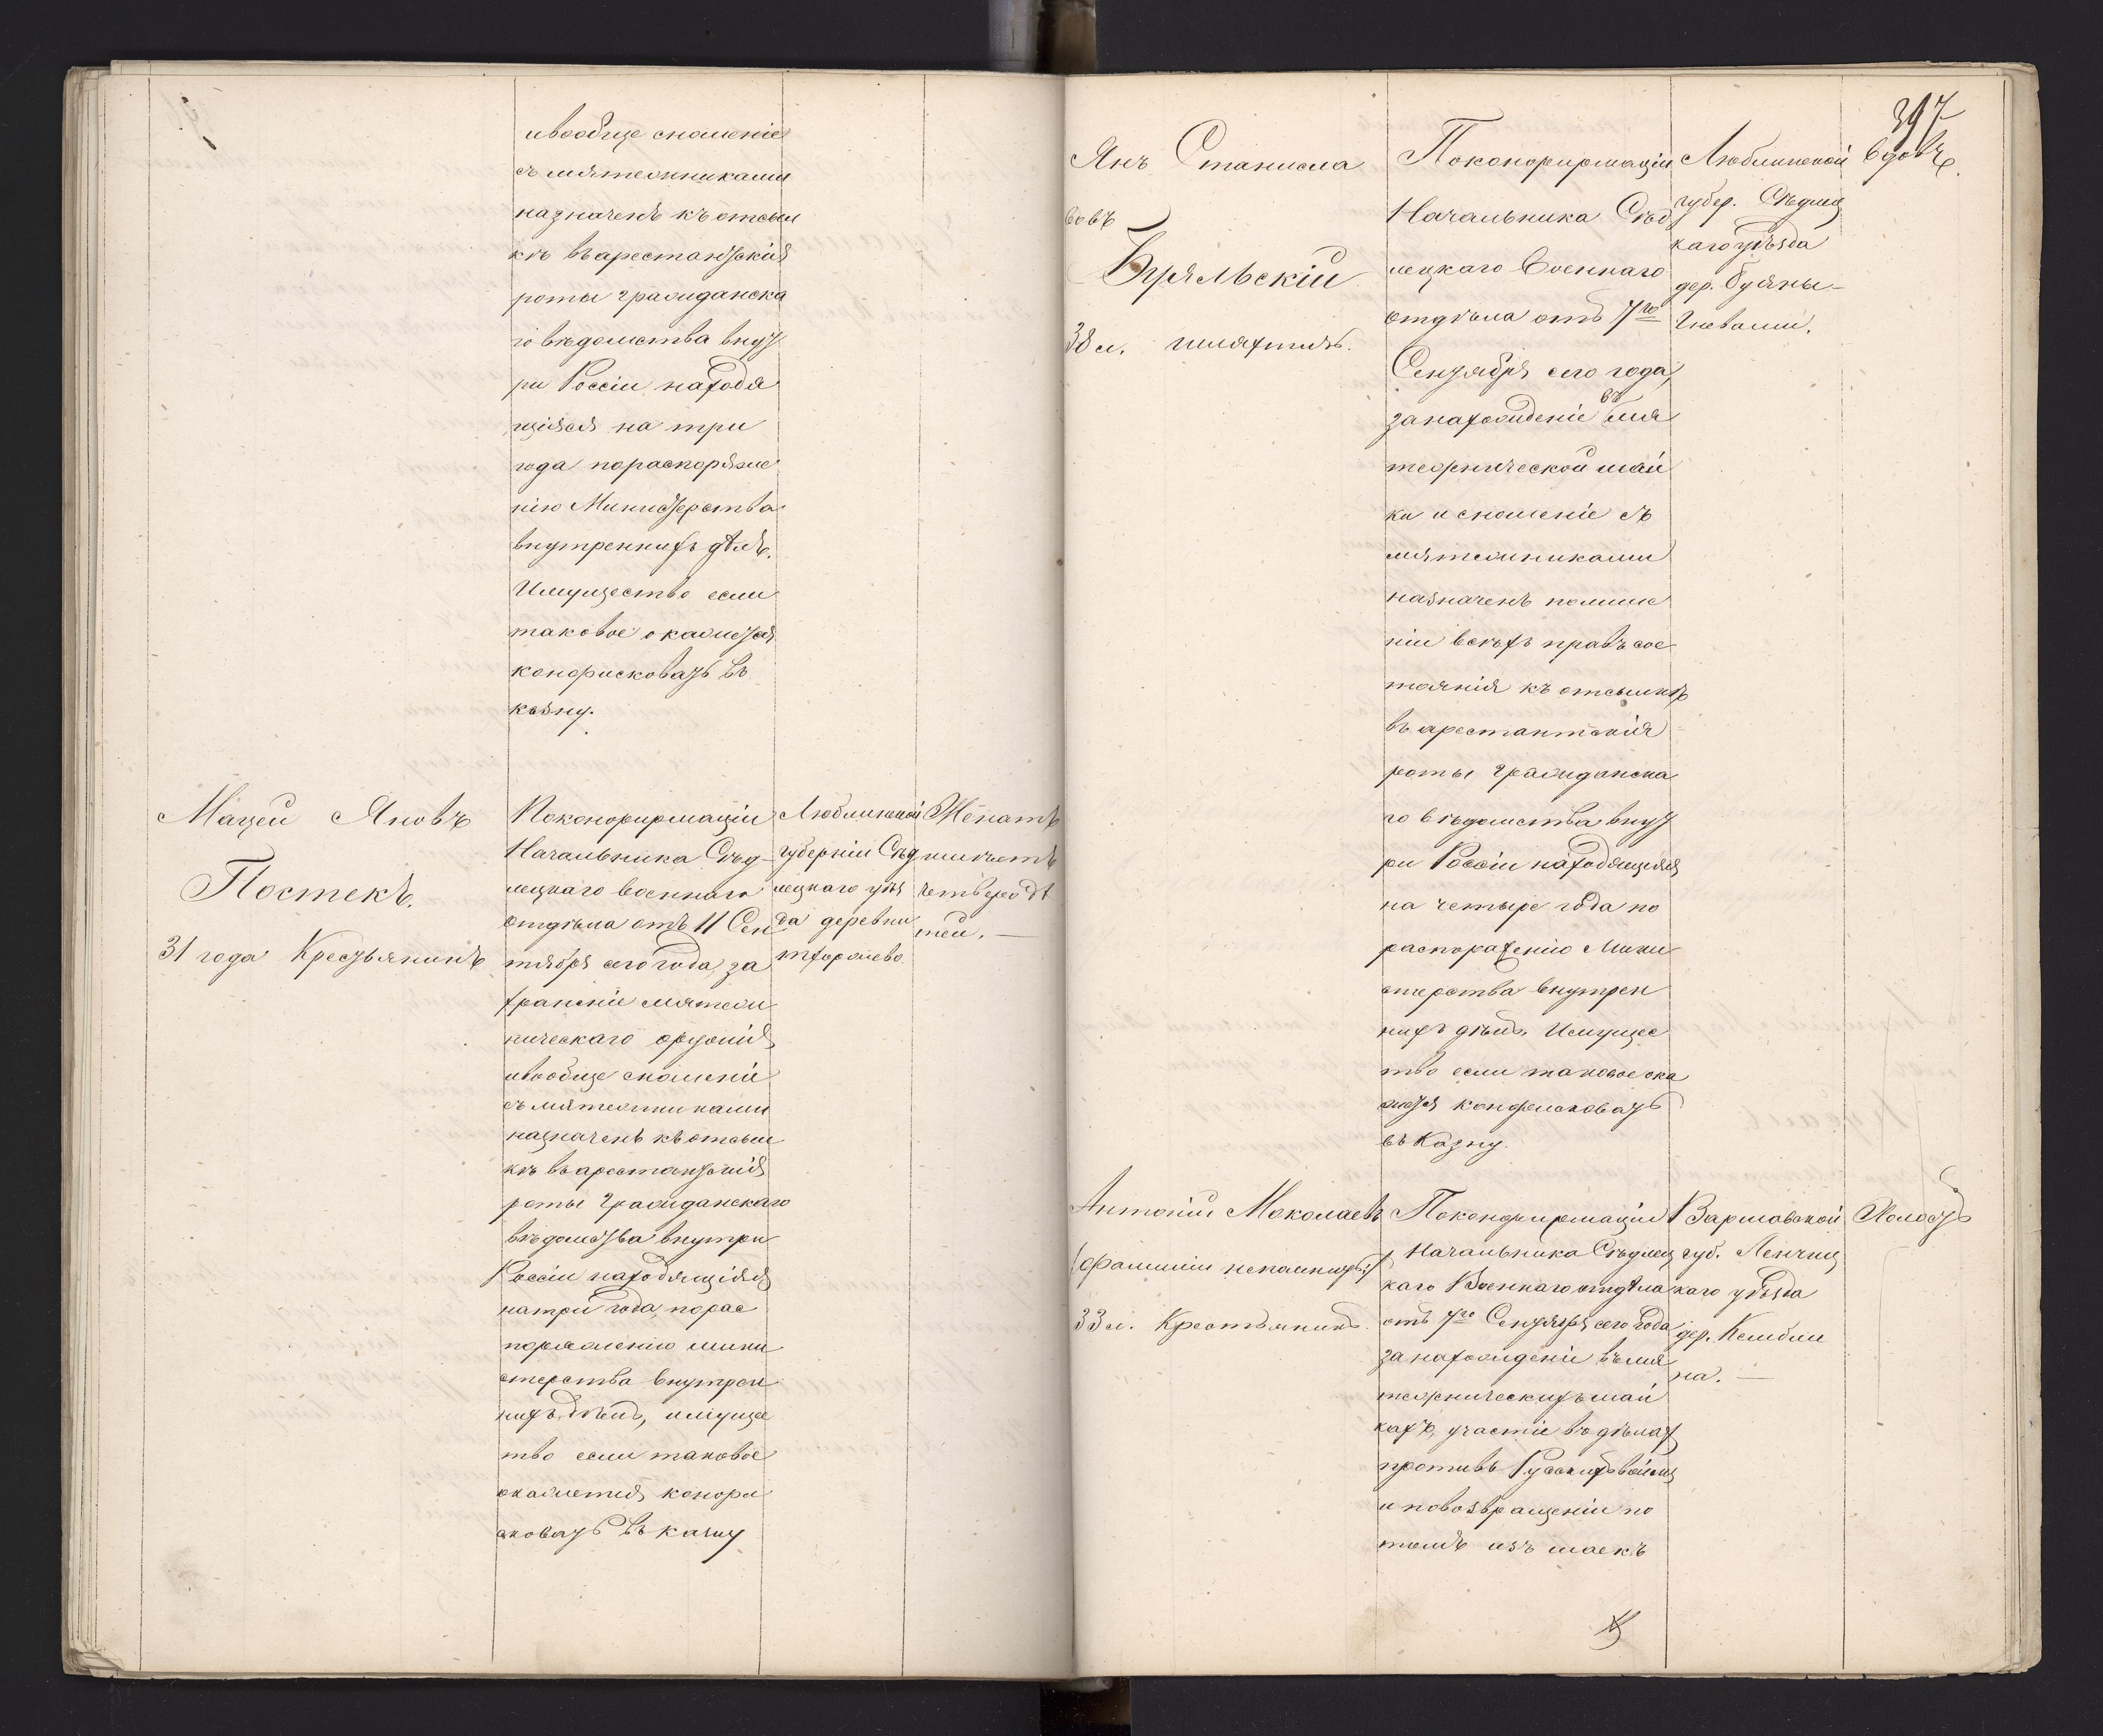 ивообще сношеніе
съ мятежниками
назначенъ къ отсыл
кѣ въ арестантскія
роты гражданска
го вѣдомства внут
ри Россіи находя
щіяся на три
года по распоряже
нію Министерства
внутреннихъ дѣлъ.
Имущество если
таковое окажется
конфисковать въ
казну.
Мацей Яновъ
Постекъ.
31 года Крестьянинъ
По конфирмаціи
Начальника Сѣд-
лецкаго военнаго
отдѣла отъ 11 Сен
тября сего года, за
храненіе мятеж
ническаго оружія
ивообще сношеніе
съ мятежниками
назначенъ къ отсыл
кѣ въ арестантскія
роты Гражданскаго
вѣдомства внутри
Россіи находящіяся
на три года, по рас
поряженію мини
стерства внутрен
нихъ дѣлъ, имущес
тво если таковое
окажется конфи
сковать въ казну
Люблинской
губерніи Сѣд
лецкаго уѣз
да деревни
Женатъ
имѣетъ
четверо дѣ
тей. —
397
Янъ Станисла
вовъ
38 л. шляхтичъ.
По конфирмаціи
Начальника Сѣд
лецкаго Военнаго
отдѣла отъ 7го
Сентября сего года,
за нахожденіе въ мя
тежнической шай
ки и сношеніе съ
мятежниками
назначенъ по лише
ніи всѣхъ правъ сос
тоянія къ отсылкѣ
въ арестантскія
роты гражданска
го вѣдомства внут
ри Россіи находящіяся
на четыре года по
распоряженію Мини
стерства внутрен
нихъ дѣлъ. Имущес
тво если таковое ока
жется конфисковать
въ Казну.
Люблинской
губер. Сѣдлец
каго уѣзда
дер.
вдовъ.
Антоній Маколаевъ
(фамиліи непомнитъ)
33 л. Крестьянинъ.
По конфирмаціи
Начальника Сѣдлец
каго Военнаго отдѣла
отъ 7го Сентября сего года
за нахожденіе въ мя
тежническихъ шай
кахъ, участіе въ дѣлах
противъ Русскихъ войскъ
и по возвращеніи по
томъ изъ шаекъ
Варшавской
губ. Ленчиц
каго уѣзда
дер. Кембли
на. —
Холостъ